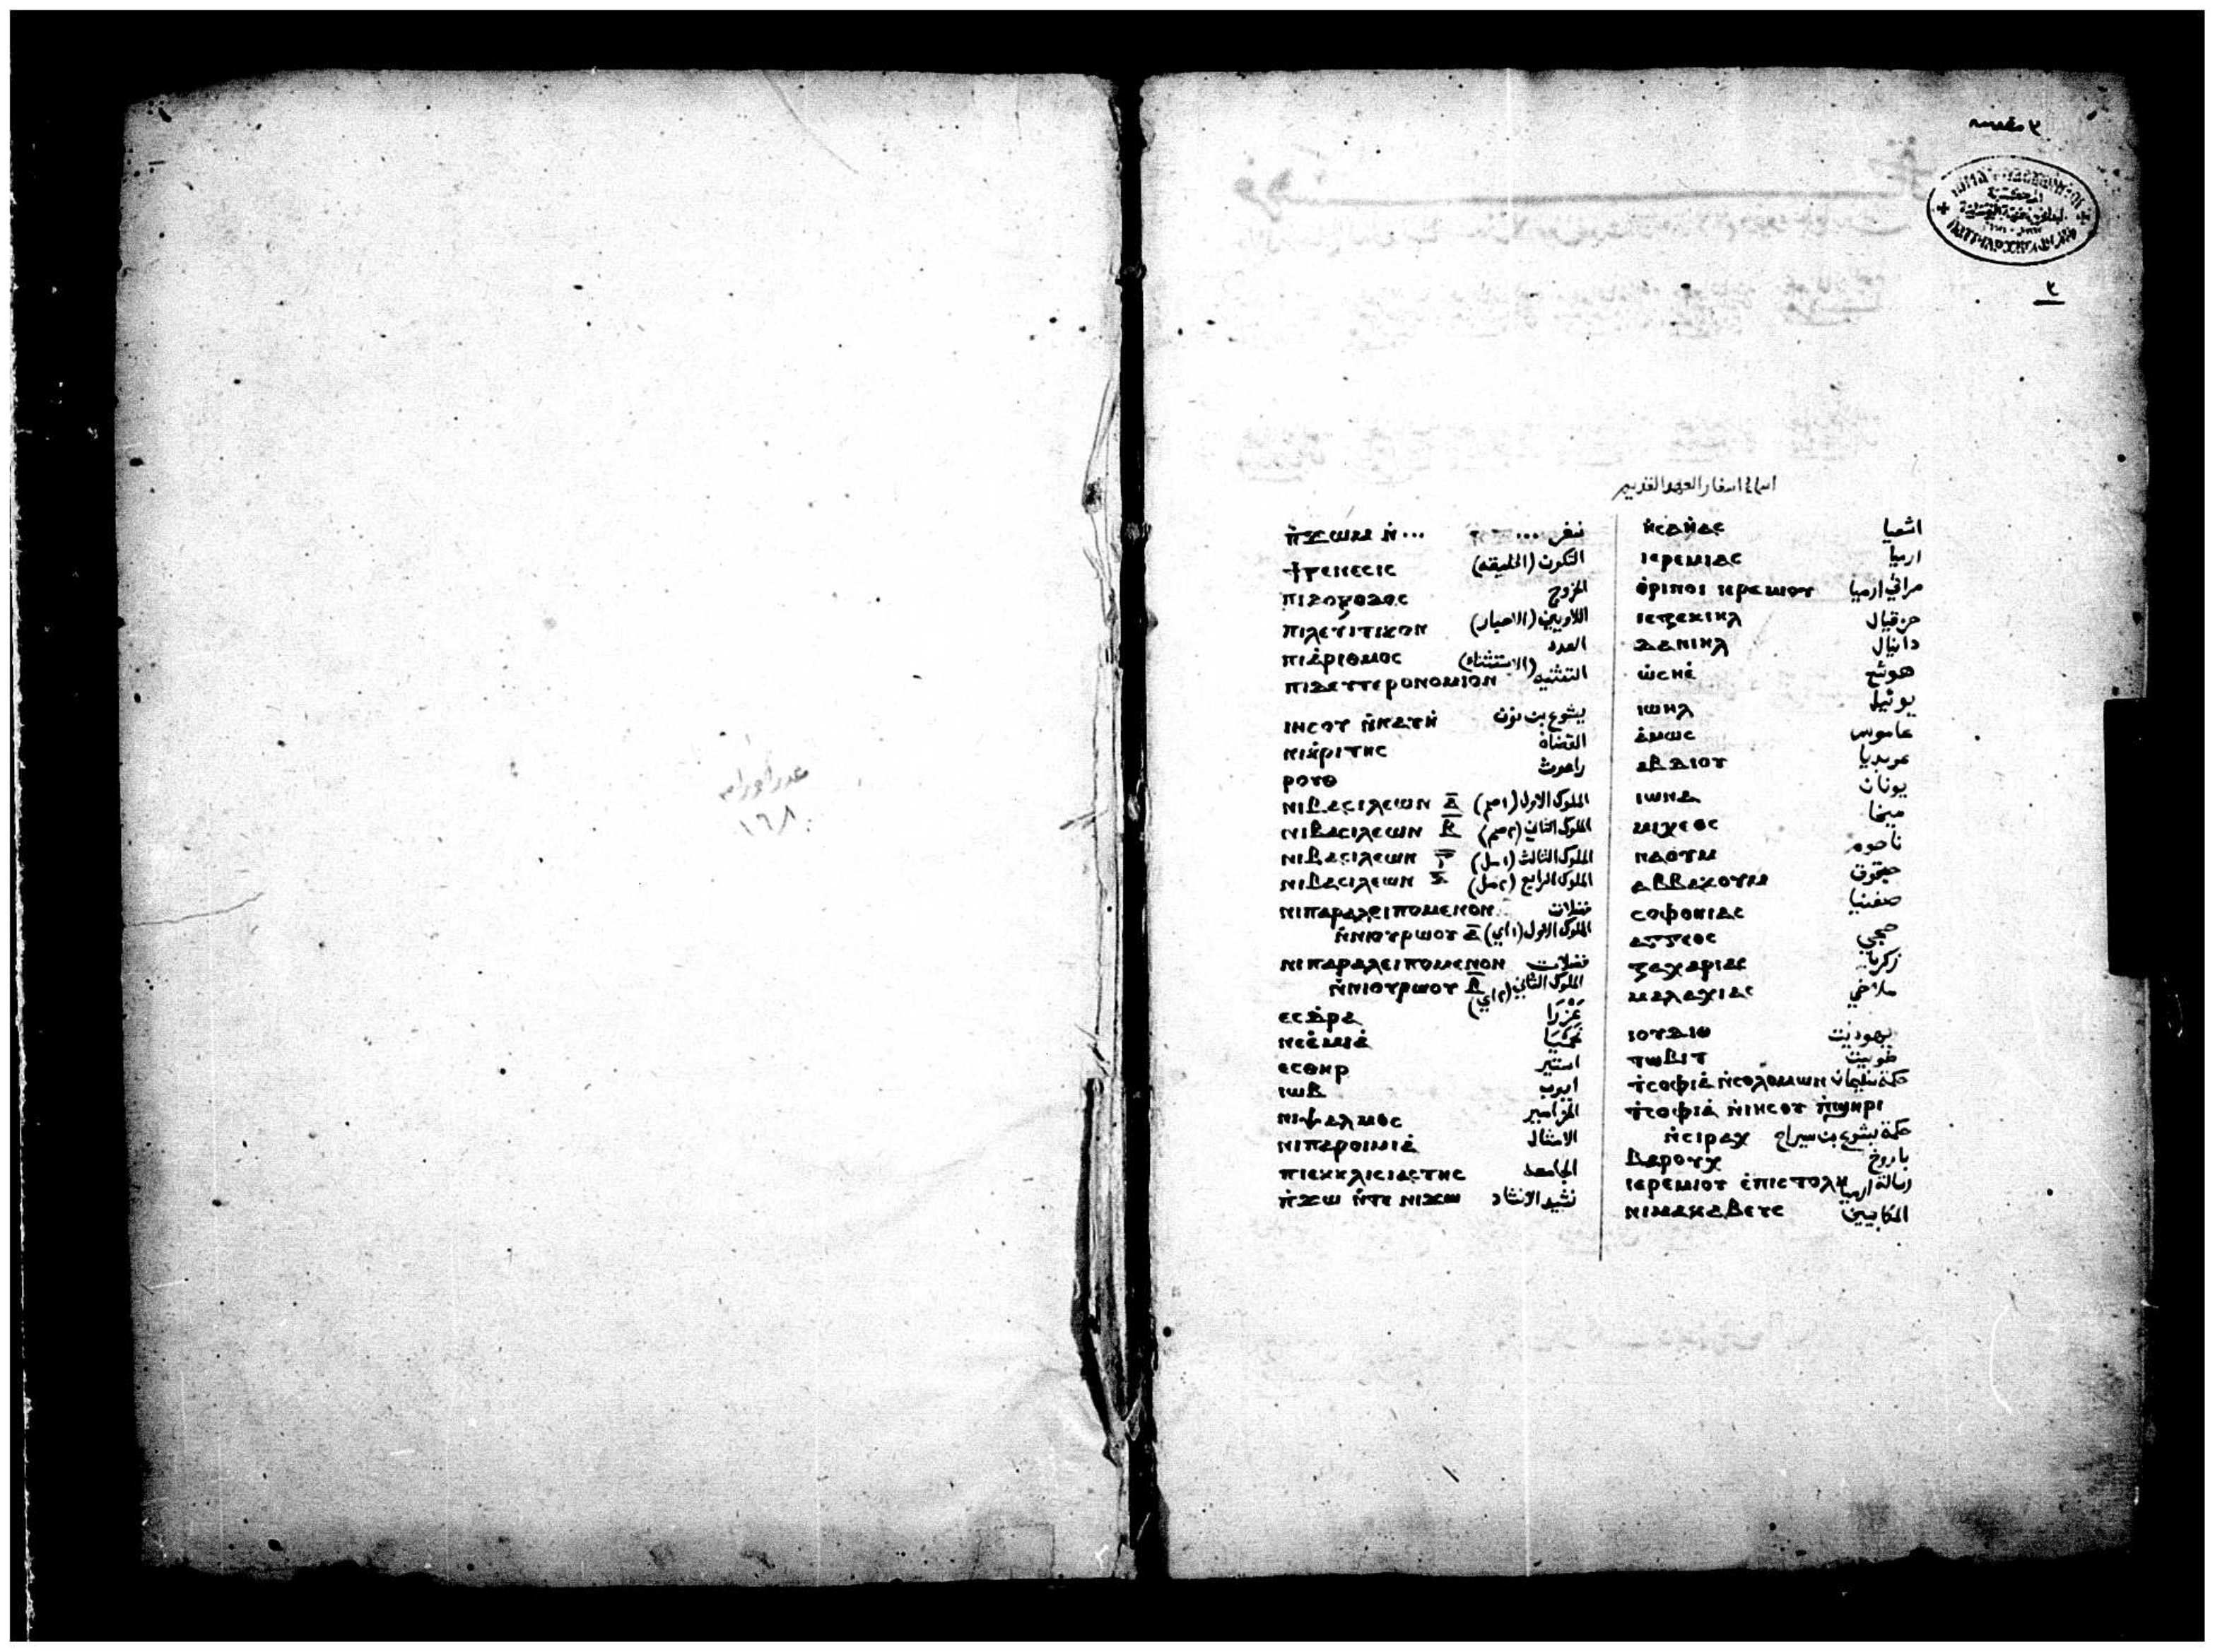 عدد اوراقه
١٦٨
٢ مقدسة
٢
اسماء اسفار العهد القديم
ⲡ̀ϫⲱⲙ ⲛ̀... سفر ...
ϯⲅⲉⲛⲉⲥⲓⲥ التكوين (الخليقه)
ⲡⲓⲇⲟⲝⲟⲇⲟⲥ الخروج
ⲡⲓⲗⲉⲩⲓⲧⲓⲕⲟⲛ اللاويين (الاحبار)
ⲡⲓⲁ̀ⲣⲓⲑⲙⲟⲥ العدد
ⲡⲓⲇⲉⲩⲧⲉⲣⲟⲛⲟⲙⲓⲟⲛ التثنيه (الاستثناء)
ⲓⲏⲥⲟⲩ ⲛ̀ⲛⲁⲩⲏ̀ يشوع بن نون
ⲛⲓⲕ̀ⲣⲓⲧⲏⲥ القضاة
ⲣⲟⲩⲑ راعوث
ⲛⲓⲃⲁⲥⲓⲗⲉⲱⲛ ⲁ̅ الملوك الاول (١صم)
ⲛⲓⲃⲁⲥⲓⲗⲉⲱⲛ ⲃ̅ الملوك الثاني (٢صم)
ⲛⲓⲃⲁⲥⲓⲗⲉⲱⲛ ⲅ̅ الملوك الثالث (١مل)
ⲛⲓⲃⲁⲥⲓⲗⲉⲱⲛ ⲇ̅ الملوك الرابع (٢مل)
ⲛⲓⲡⲁⲣⲁⲗⲉⲓⲡⲟⲙⲉⲛⲟⲛ فضلات
ⲛ̀ⲛⲓⲟⲩⲣⲱⲟⲩ ⲁ̅ الملوك الاول (١اي)
ⲛⲓⲡⲁⲣⲁⲗⲉⲓⲡⲟⲙⲉⲛⲟⲛ فضلات
ⲛ̀ⲛⲓⲟⲩⲣⲱⲟⲩ ⲃ̅ الملوك الثاني (٢اي)
ⲉⲥⲇⲣⲁ عَزْرَا
ⲛⲉⲉ̀ⲙⲓⲁ̀ نَحَمْيَا
ⲉⲥⲑⲏⲣ استير
ⲓⲱⲃ ايوب
ⲛⲓⲯⲁⲗⲙⲟⲥ المزامير
ⲛⲓⲡⲁⲣⲟⲓⲙⲓⲁ̀ الامثال
ⲡⲓⲉⲕⲕⲗⲓⲥⲓⲁⲥⲧⲏⲥ الجامعه
ⲡ̀ϫⲱ ⲛ̀ⲧⲉ ⲛⲓϫⲱ نشيد الانشاد
ⲏ̀ⲥⲁⲏ̀ⲁⲥ اشعيا
ⲓⲉⲣⲉⲙⲓⲁⲥ ارميا
ⲑ̀ⲣⲓⲛⲟⲓ ⲓⲉⲣⲉⲙⲓⲟⲩ مراثي ارميا
ⲓⲉⲍⲉⲕⲓⲏⲗ حزقيال
ⲇⲁⲛⲓⲏⲗ دانيال
ⲱ̀ⲥⲏⲉ̀ هوشع
ⲓⲱⲏⲗ يوئيل
ⲁ̀ⲙⲱⲥ عاموس
ⲁⲃⲇⲓⲟⲩ عوبديا
ⲓⲱⲛⲁ يونان
ⲙⲓⲭⲉⲟⲥ ميخا
ⲛⲁⲟⲩⲙ ناحوم
ⲁⲃⲃⲁⲕⲟⲩⲙ حبقوق
ⲥⲟⲫⲟⲛⲓⲁⲥ صفنيا
ⲁⲅⲅⲉⲟⲥ حجي
ⲍⲁⲭⲁⲣⲓⲁⲥ زكريا
ⲙⲁⲗⲁⲭⲓⲁⲥ ملاخي
ⲓⲟⲩⲇⲓⲑ يهوديت
ⲧⲱⲃⲓⲧ طوبيت
ϯⲥⲟⲫⲓⲁ̀ ⲛ̀ⲥⲟⲗⲟⲙⲱⲛ حكمة سليمان
ϯⲥⲟⲫⲓⲁ̀ ⲛ̀ⲓⲏⲥⲟⲩ ⲡ̀ϣⲏⲣⲓ
ⲛ̀ⲥⲓⲣⲁⲭ حكمة يشوع بن سيراخ
ⲃⲁⲣⲟⲩⲭ باروخ
ⲓⲉⲣⲉⲙⲓⲟⲩ ⲉ̀ⲡⲓⲥⲧⲟⲗⲏ رسالة ارميا
ⲛⲓⲙⲁⲕⲁⲃⲉⲩⲥ المكابيين